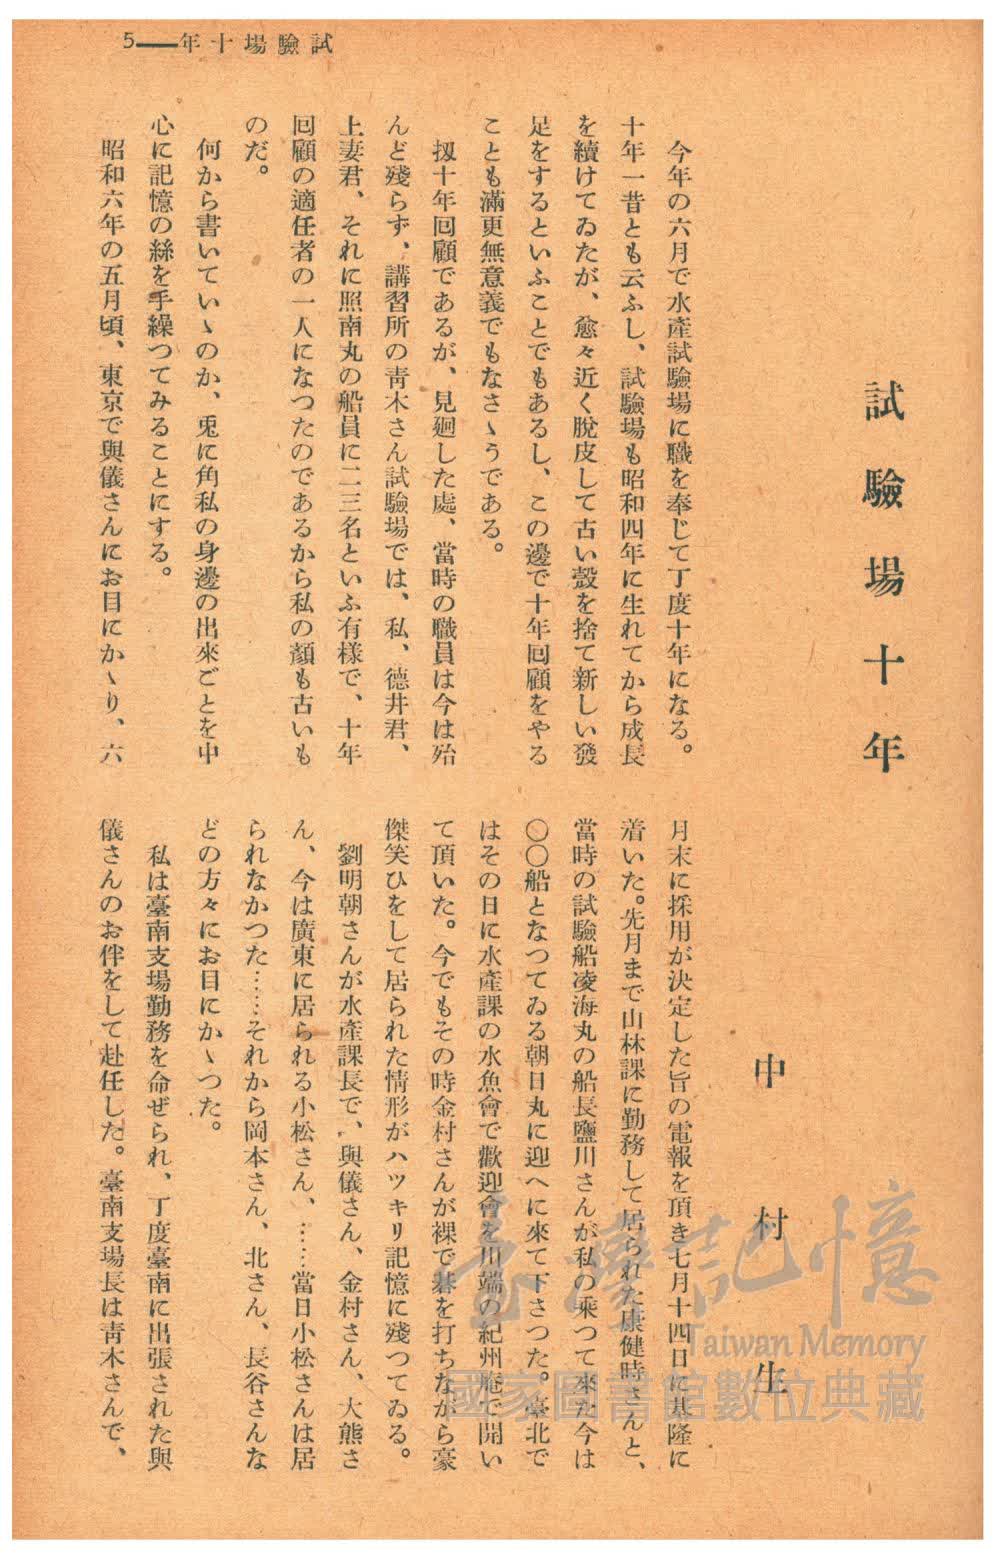 試驗場十年——5
試驗場十年
中村生
今年の六月で水產試驗場に職を奉じて丁度十年になる。
十年一昔とも云ふし、試驗場も昭和四年に生れてから成長
を續けてゐたが、愈々近く脫皮して古い殼を捨て新しい發
足をするといふことでもあるし、この邊で十年回顧をやる
ことも滿更無意義でもなさゝうである。
扨十年回顧であるが、見廻した處、當時の職員は今は殆
んど殘らず、講習所の靑木さん試驗場では、私、德井君、
上妻君、それに照南丸の船員に二三名といふ有樣で、十年
回顧の適任者の一人になつたのであるから私の顏も古いも
のだ。
何から書いていゝのか、兎に角私の身邊の出來ごとを中
心に記憶の絲を手繰つてみることにする。
昭和六年の五月頃、東京で與儀さんにお目にかゝり、六
月末に採用が決定した旨の電報を頂き七月十四日に基隆に
着いた。先月まで山林課に勤務して居られた康健時さんと、
當時の試驗船凌海丸の船長鹽川さんが私の乘つて來た今は
〇〇船となつてゐる朝日丸に迎へに來て下さつた。臺北で
はその日に水產課の水魚會で歡迎會を川端の紀州庵で開い
て頂いた。今でもその時金村さんが裸で碁を打ちながら豪
傑笑ひをして居られた情形がハツキリ記憶に殘つてゐる。
劉明朝さんが水產課長で、與儀さん、金村さん、大熊さ
ん、今は廣東に居られる小松さん、……當日小松さんは居
られなかつた……それから岡本さん、北さん、長谷さんな
どの方々にお目にかゝつた。
私は臺南支場勤務を命ぜられ、丁度臺南に出張された與
儀さんのお伴をして赴任した。臺南支場長は靑木さんで、
臺灣記憶
Taiwan Memory
國家圖書館數位典藏